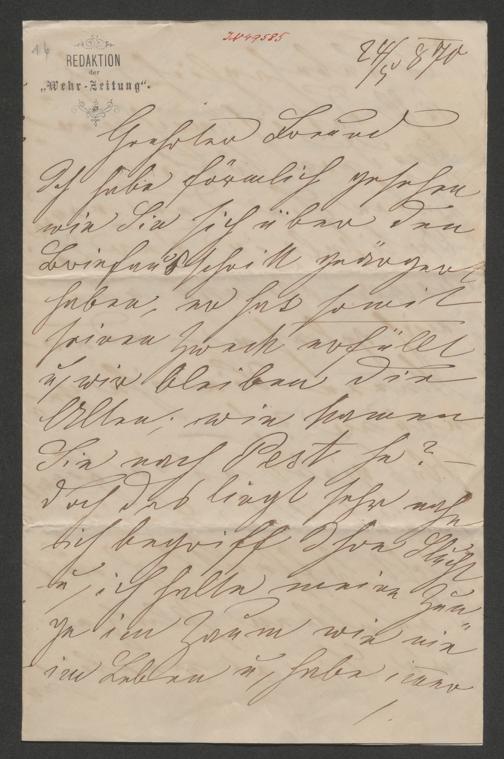 I.N 49585
24/5 870
REDAKTION
der
„Wehr-Zeitung“.
Geehrter Freund
Ich habe förmlich gesehen
wie Sie sich über den
Briefaufschrift geärgert
haben, er hat somit
seinen Zweck erfüllt
u, wir bleiben die
Alten; wie kamen
Sie nach Pest he? —
doch das liegt sehr nahe
ich begriff Ihre
u, ich halte meine Zun
ge im Zaum wie nie
im Leben u, habe immer